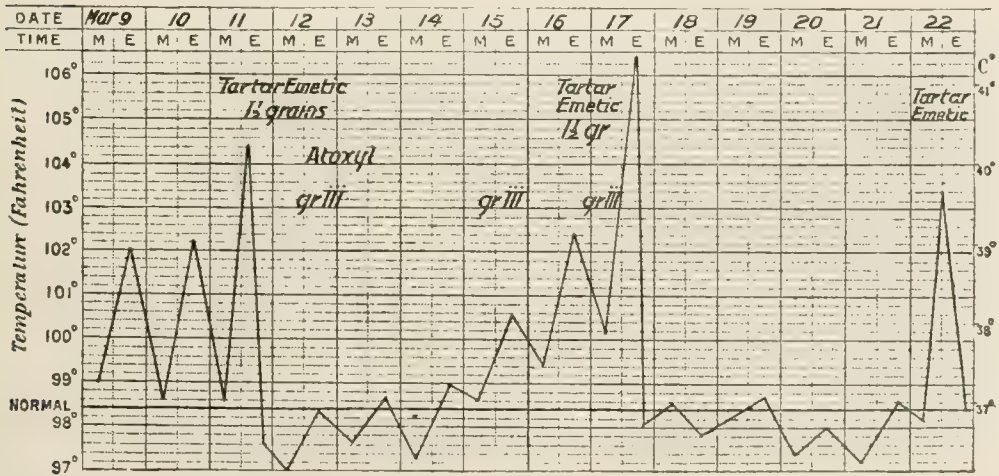 DATE Mar 9 10 11 12 13 14 15 16 17 18 19 20 21 22
TIME M E M E M E M E M E M E M E M E M E M E M E M E M E M E
Temperature (Fahrenheit)
106°
105°
104°
103°
102°
101°
100°
99°
NORMAL
98°
97°
Tartar Emetic
1½ grains
Atoxyl
gr III
gr III
Tartar
Emetic
1½ gr
gr III
Tartar
Emetic
C°
41°
40°
39°
38°
37°